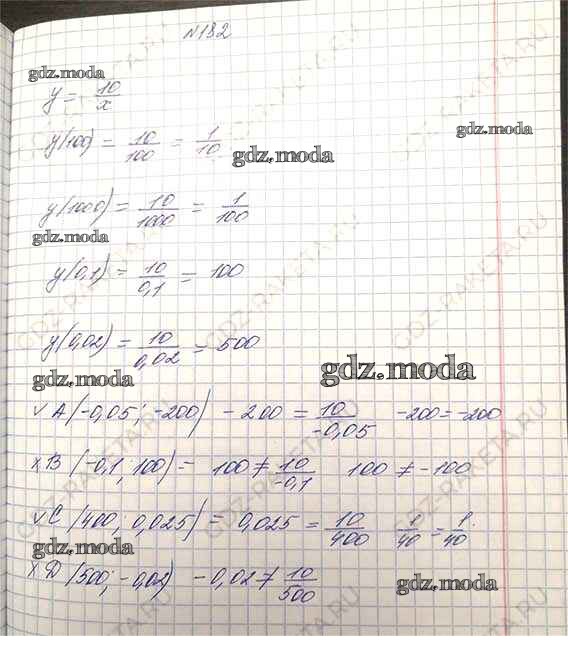 N182
gdz.moda
y = 10/x
y(100) = 10/100 = 1/10
gdz.moda
gdz.moda
y(1000) = 10/1000 = 1/100
gdz.moda
y(0,1) = 10/0,1 = 100
y(0,02) = 10/0,02 = 500
gdz.moda
gdz.moda
✓ A (-0,05; -200) -200 = 10/-0,05 -200 = -200
× B (-0,1; 100) = 100 ≠ 10/-0,1 100 ≠ -100
✓ C (400; 0,025) = 0,025 = 10/400 1/40 = 1/40.
gdz.moda
× D (500; -0,02) -0,02 ≠ 10/500
gdz.moda
GDZ-RAKETA.RU